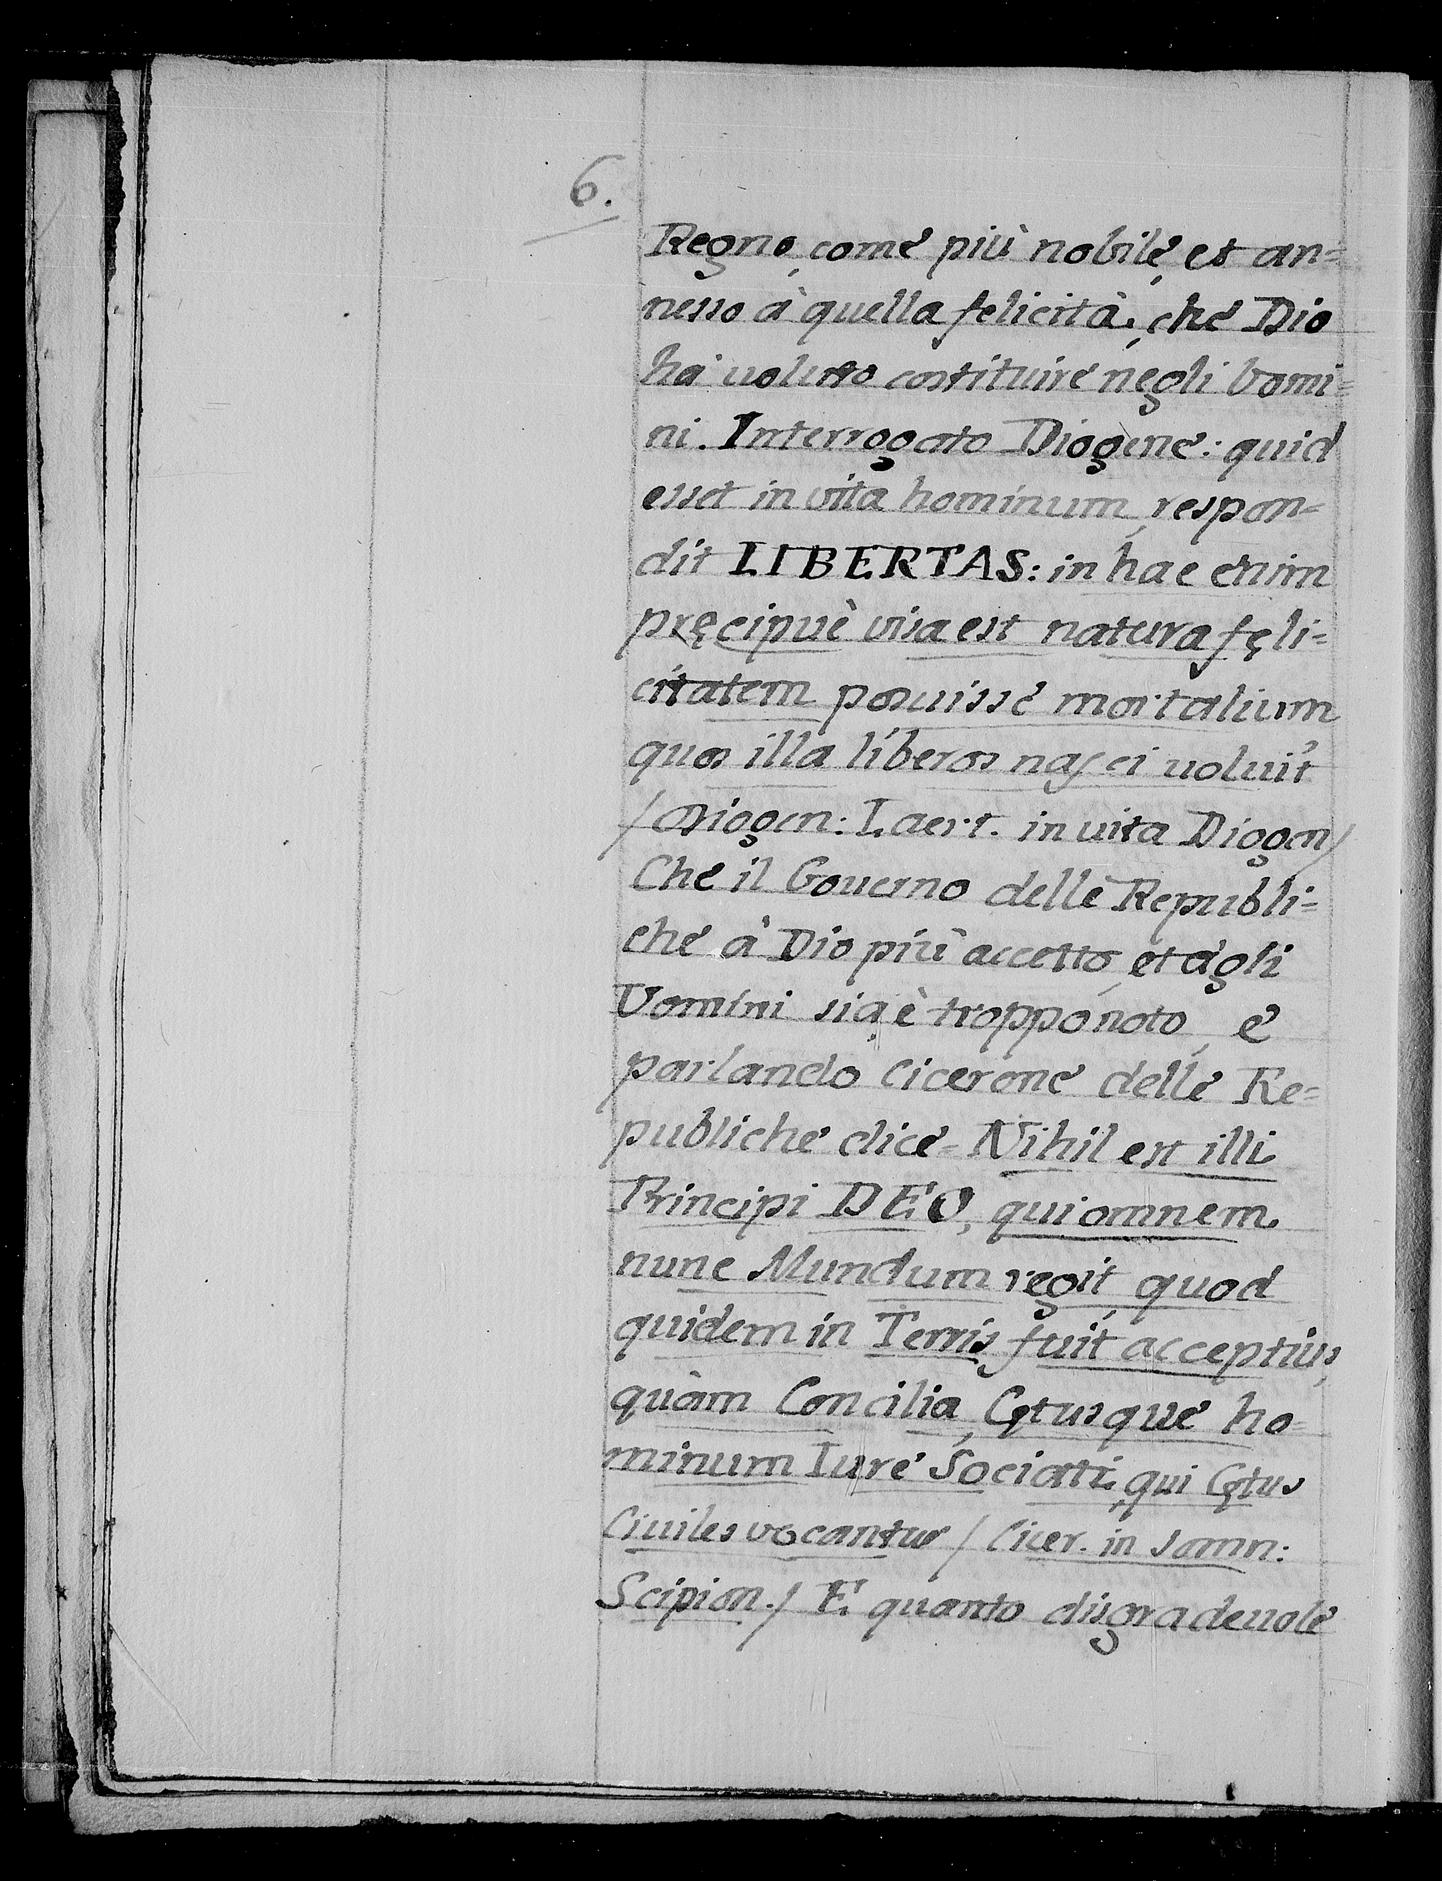 6.
Regno, come più nobile, et an=
nesso à quella felicità, che Dio
hà uoluto costituire negli homi=
ni. Interrogato Diogene: quid
esset in vita hominum, respon=
dit LIBERTAS: in hac enim
pręcipuè visa est natura fęli=
citatem posuisse mortalium
quos illa liberos nasci uoluit
/Diogen: Laert. in uita Diogen/
Che il Gouerno delle Republi=
che à Dio più accetto, et agli
Uomini sia, è troppo noto, e
parlando Cicerone delle Re=
publiche dice= Nihil est illi
Principi DEO, qui omnem
nunc Mundum regit, quod
quidem in Terris fuit acceptius,
quàm Concilia, Cętusque ho=
minum Iure Sociati, qui Cętus
Ciuiles vocantur / Cicer. in somn:
Scipion./ E quanto disgradeuole